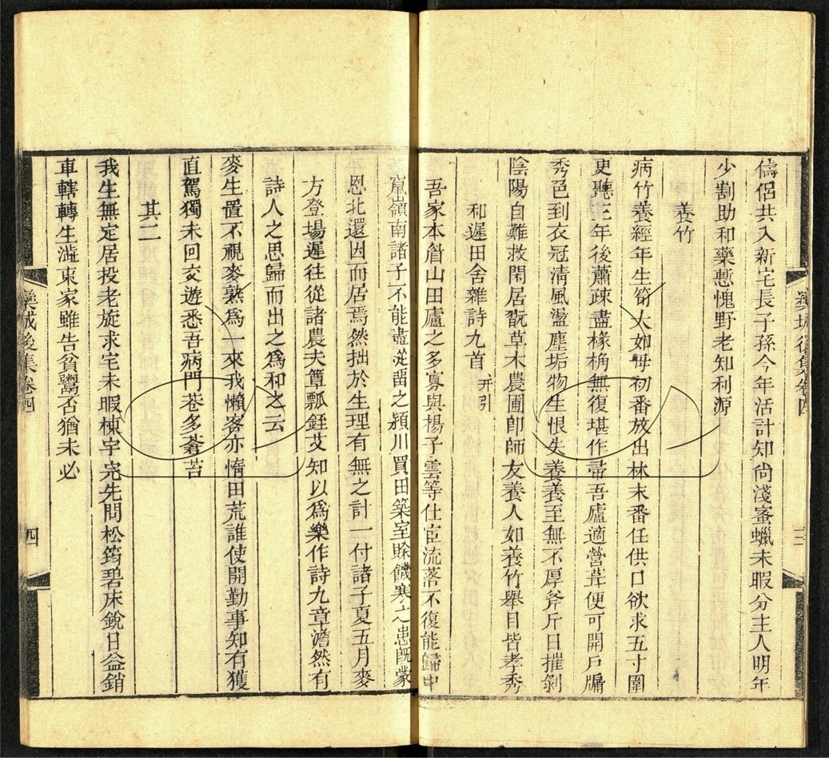 儔侶共入新宅長子孫今年活計知尙淺蜜蠟未暇分主人明年
少割助和藥慙愧野老知利源
養竹
病竹養經年生筍大如母初番放出林末番任供口欲求五寸圍
更聽三年後蕭疎盡椽桷無復堪作帚吾廬適營葺便可開戶牖
秀色到衣冠淸風盪塵垢物生恨失養養至無不厚斧斤日摧剝
陰陽自難救閑居翫草木農圃卽師友養人如養竹舉目皆孝秀
和遲田舍雜詩九首 幷引
吾家本眉山田廬之多寡與楊子雲等仕宦流落不復能歸中
竄嶺南諸子不能盡從留之潁川買田築室賒饑寒之患旣蒙
恩北還因而居焉然拙於生理有無之計一付諸子夏五月麥
方登場遲往從諸農夫簞瓢銍艾知以爲樂作詩九章澹然有
詩人之思歸而出之爲和之云
麥生置不視麥熟爲一來我懶客亦惰田荒誰使開勤事知有獲
直駕獨未回交遊悉吾病門巷多蒼苔
其二
我生無定居投老旋求宅未暇棟宇完先問松筠碧床銳日益銷
車轄轉生澁東家雖告貧鬻否猶未必
欒城後集卷四
三
欒城後集卷四
四